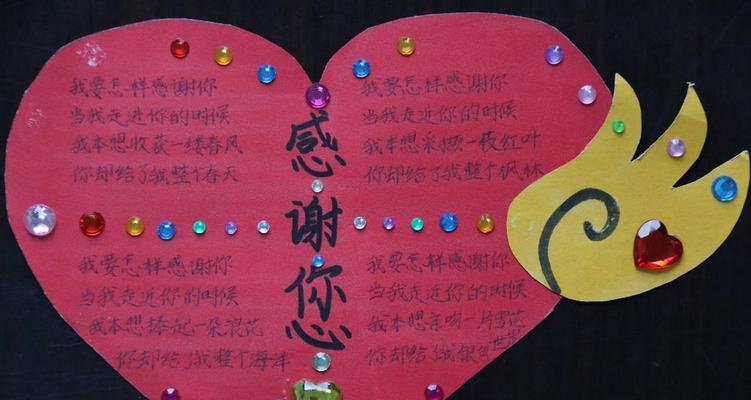 我要怎样感谢你
当我走进你的时候
我本想收获一缕春风
你却给了我整个春天
我要怎样感谢你
当我走近你的时候
我本想采撷一枝红叶
你却给了我整个枫林
感谢您
我要怎样感谢你
当我走近你的时候
我本想捧起一朵浪花
你却给了我整个海洋
我要怎样感谢你
当我走近你的时候
我本想亲吻一片雪花
你却给了我银色世界